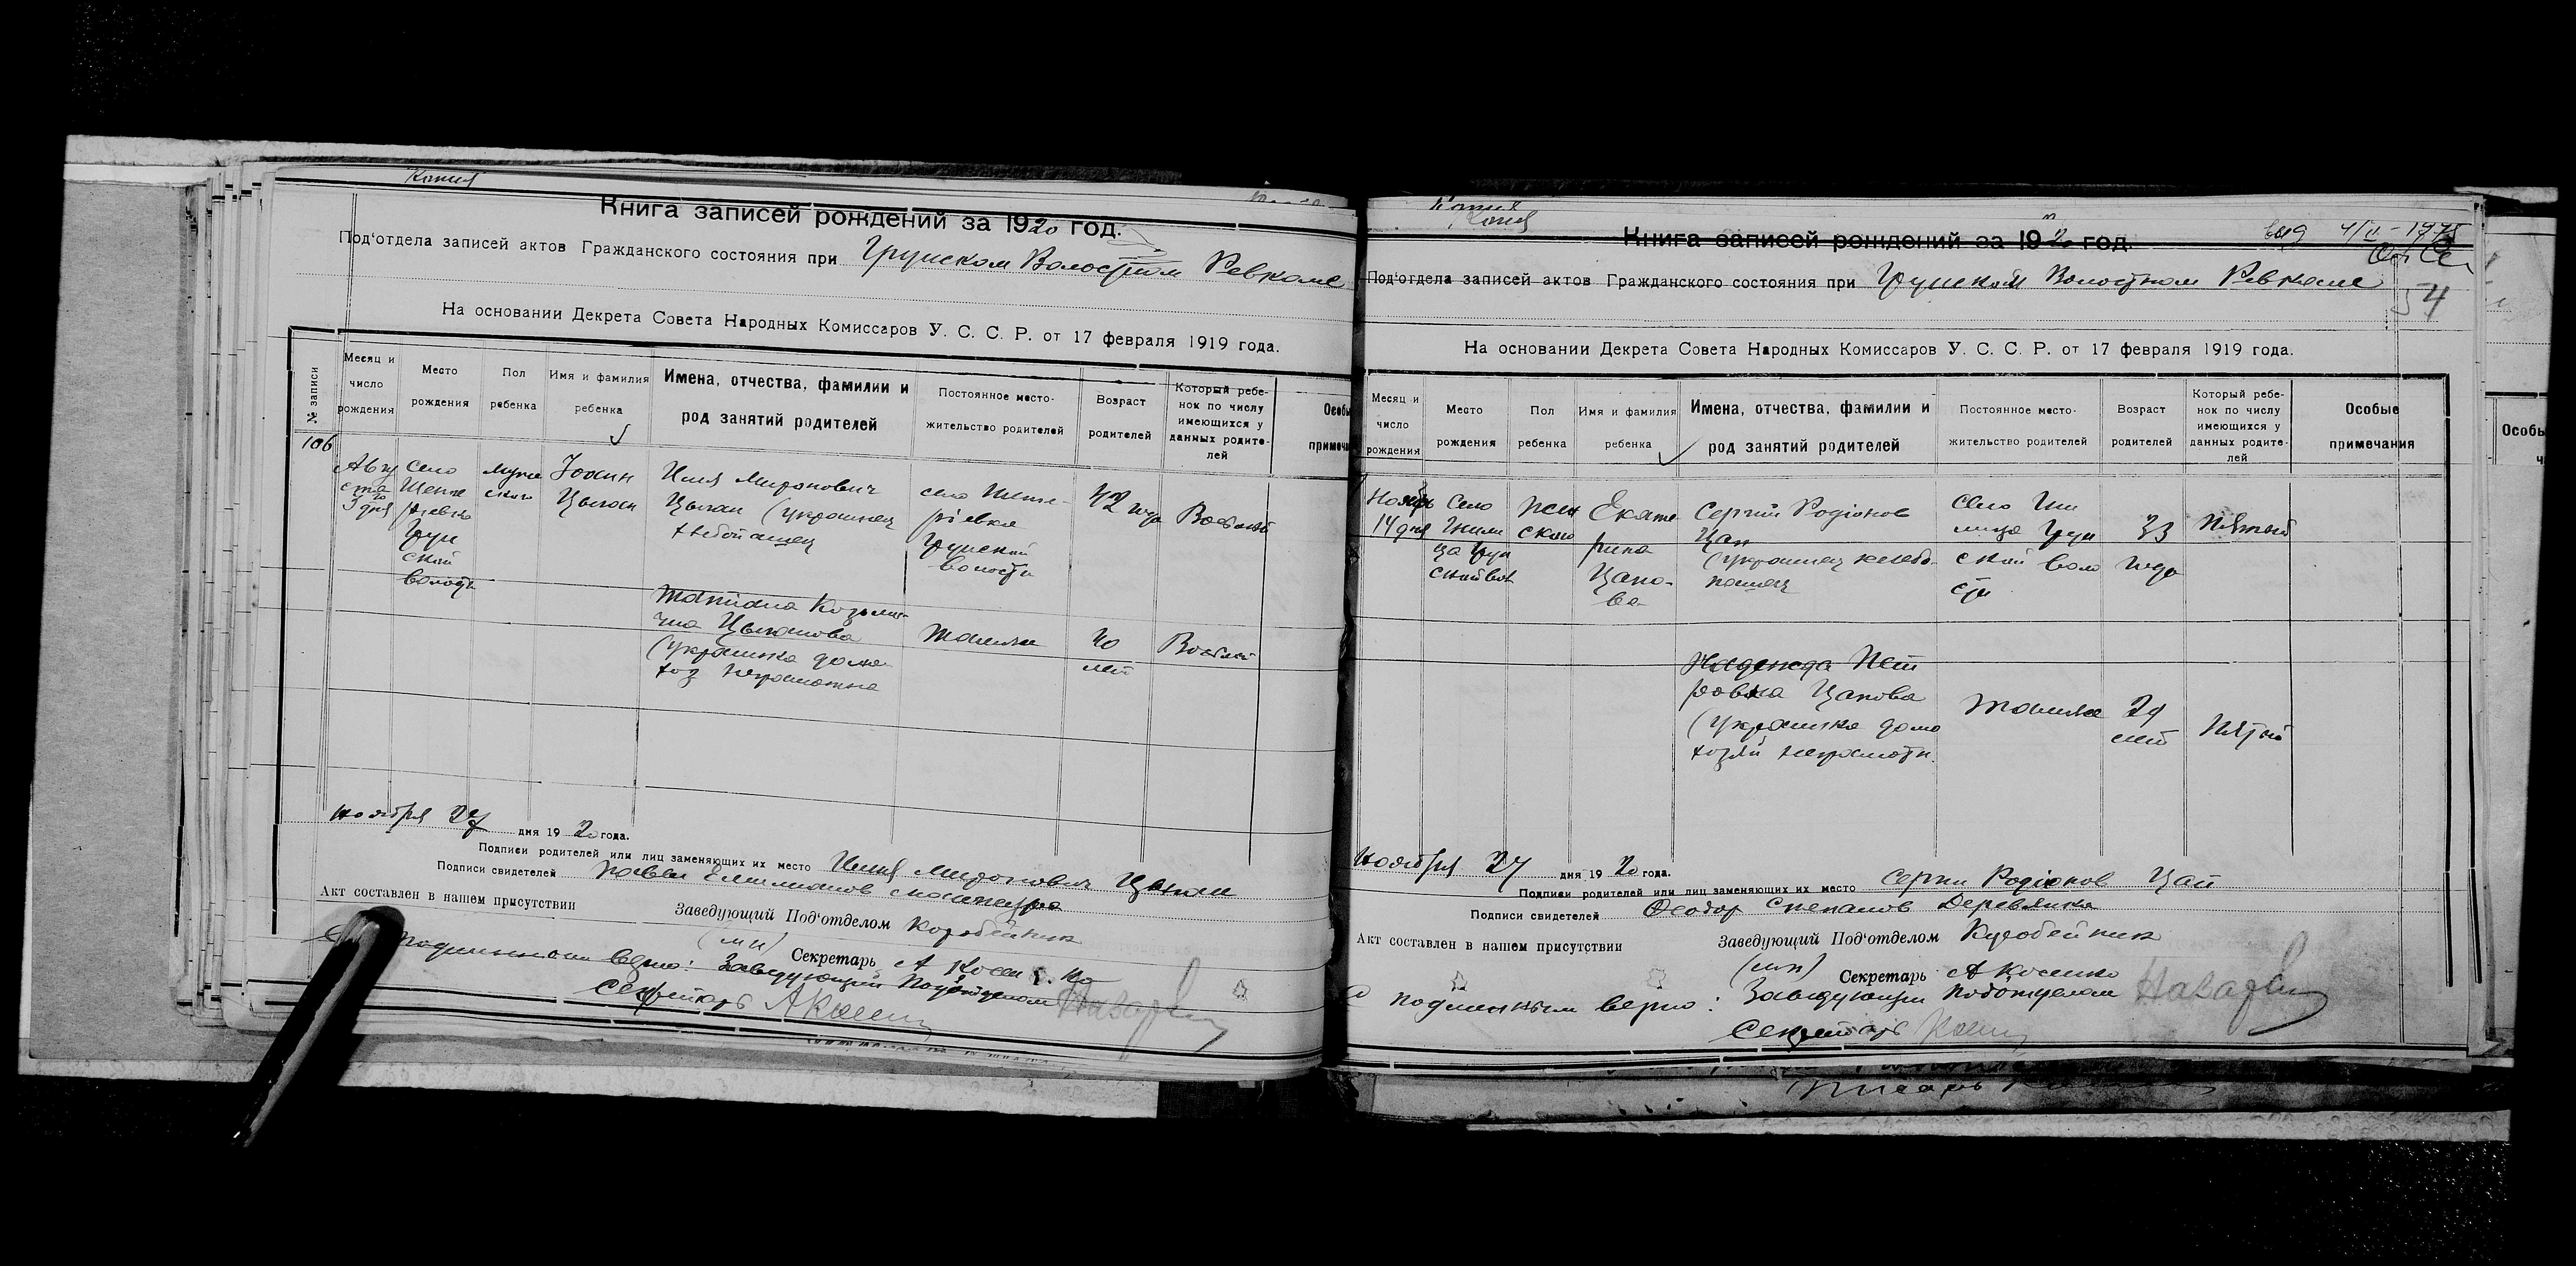 Копия
Книга записей рождений за 1920 год.
Под‘отдела записей актов Гражданского состояния при Грунском Волостном Ревкоме
На основании Декрета Совета Народных Комиссаров У. С. С. Р. от 17 февраля 1919 года.
№ записи
Месяц и число рождения
Место рождения
Пол ребенка
Имя и фамилия ребенка
Имена, отчества, фамилии и род занятий родителей
Постоянное место-жительство родителей
Возраст родителей
Который ребе-нок по числу имеющихся у данных родите-лей
Особы
примеча
106
Авгу
ста
3 дня
Село
ривка
Грун
ской
волости
муже
ского
Цыган
Илия Миронович
Цыган (украинец
хлебопашец
село
рiевка
Грунской
волости
42 года
Восьмой
Татиана Козьми-
на Цыганова
(украинка домо
хоз неграмотна
Тамже
40
лет
Восьмой
Ноября 27 дня 1920 года.
Подписи родителей или лиц заменяющих их место Илия Миронович Цыган
Подписи свидетелей Павел Емилианов
Акт составлен в нашем присутствии
Заведующий Под‘отделом Коробейник
(мп)
Секретарь А Косенко
С подлинным верно: Заведующий Подотделом
Секретарь А
Копия
Копия
Книга записей рождений за 1920 год.
выд
54
Под‘отдела записей актов Гражданского состояния при Грунском Волостном Ревкоме
На основании Декрета Совета Народных Комиссаров У. С. С. Р. от 17 февраля 1919 года.
Месяц и число рождения
Место рождения
Пол ребенка
Имя и фамилия ребенка
Имена, отчества, фамилии и род занятий родителей
Постоянное место-жительство родителей
Возраст родителей
Который ребе-нок по числу имеющихся у данных родите-лей
Особые
примечания
Особы
Ноябрь
14 дня
Село
Гнили
ца Грун
ской вол
жен
ского
Екате
рина
Цапо-
ва
Сергий Родiонов
Цап
(украинец хлебо-
пашец
Село Гни
лица Грун
ской воло
сти
33
года
Пятый
Надежда Пет
ровна Цапова
(украинка домо
хозяй неграмотн.
Тамже
29
лет
Пятый
Ноября 27 дня 1920 года.
Подписи родителей или лиц заменяющих их место Сергий Родiонов Цап
Подписи свидетелей Феодор Степанов Деревянка
Акт составлен в нашем присутствии
Заведующий Под‘отделом Коробейник
(мп)
Секретарь А Косенко
С подлинным верно: Заведующий Подотделом
Секретарь